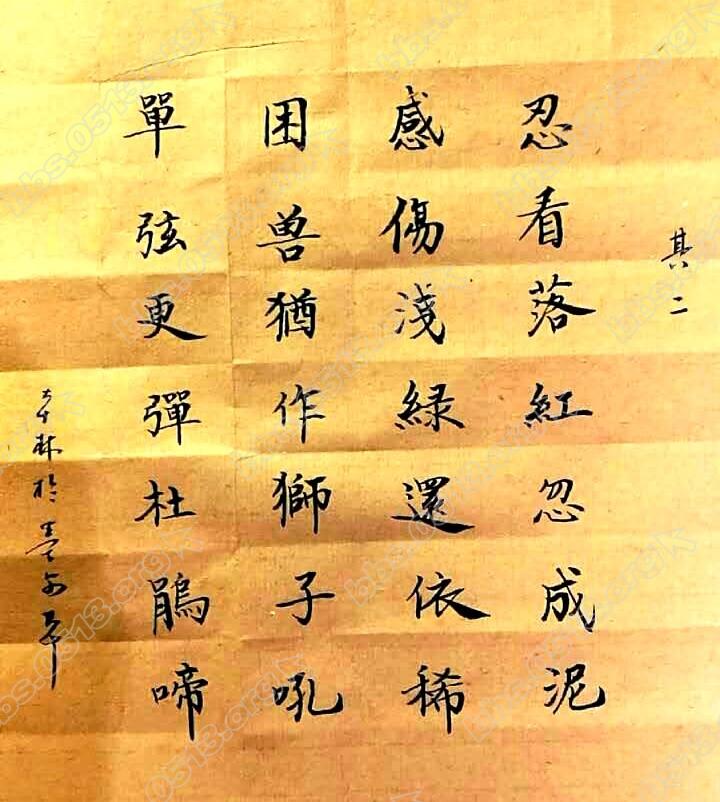 其二
忍看落紅忽成泥
感傷淺綠還依稀
困兽猶作獅子吼
單弦更彈杜鵑啼
林於
bbs.0513.org